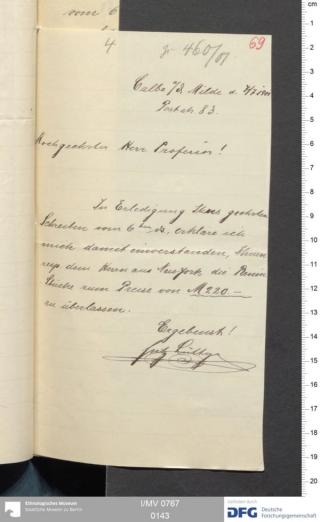 vom 6
4
zu 460/01
69
Calbe a/S. Milde d.
Postst. 83.
Hochgeehrter Herr Professor!
In Erledigung Ihres geehrten
Schreiben vom 6ten ds. erkläre ich
mich damit einverstanden, Ihnen
resp dem Herrn aus Newyork die
Stücke zum Preise von M 220.—
zu überlassen.
Ergebenst!
Ethnologisches Museum
Staatliche Museen zu Berlin
I/MV 0767
0143
Gefördert durch
DFG Deutsche
Forschungsgemeinschaft
cm
1
2
3
4
5
6
7
8
9
10
11
12
13
14
15
16
17
18
19
20